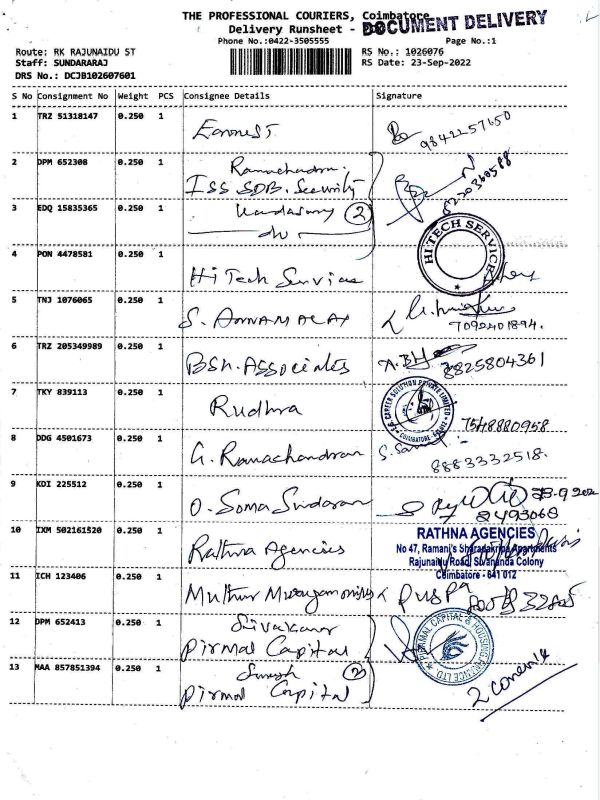 THE PROFESSIONAL COURIERS, Coimbatore
Delivery Runsheet - DOCUMENT DELIVERY
Phone No.:0422-3505555 Page No.:1
Route: RK RAJUNAIDU ST RS No.: 1026076
Staff: SUNDARARAJ RS Date: 23-Sep-2022
DRS No.: DCJB102607601
S No Consignment No Weight PCS Consignee Details Signature
1 TRZ 51318147 0.250 1 Earnest 9842257650
2 DPM 652308 0.250 1 Ramachandran
ISS SDB. Security 8220360588
3 EDQ 15835365 0.250 1 Kandasamy 2
HITECH SERVICE
4 PON 4478581 0.250 1 Hi Tech Service
5 TNJ 1076065 0.250 1 S. ANNAMALAY
7092401894.
6 TRZ 205349989 0.250 1 BSN. Associates 8825804361
7 TKY 839113 0.250 1 Rudhra 7548880958
CAREER SOLUTION PRIVATE LIMITED
COIMBATORE
8 DDG 4501673 0.250 1 G. Ramachandran
8883332518.
9 KDI 225512 0.250 1 O. Soma Sundaran
2493068
10 IXM 502161520 0.250 1 Rathna Agencies
RATHNA AGENCIES
No 47, Ramani's Sharadakripa Apartments
Rajunaidu Road, Sivananda Colony
Coimbatore - 641 012
11 ICH 123406 0.250 1 Muthur Puspa
12 DPM 652413 0.250 1 Sivakumar
Pirmal Capital
PIRAMAL CAPITAL & HOUSING FINANCE LTD
13 MAA 857851394 0.250 1 Suresh 2
Pirmal Capital